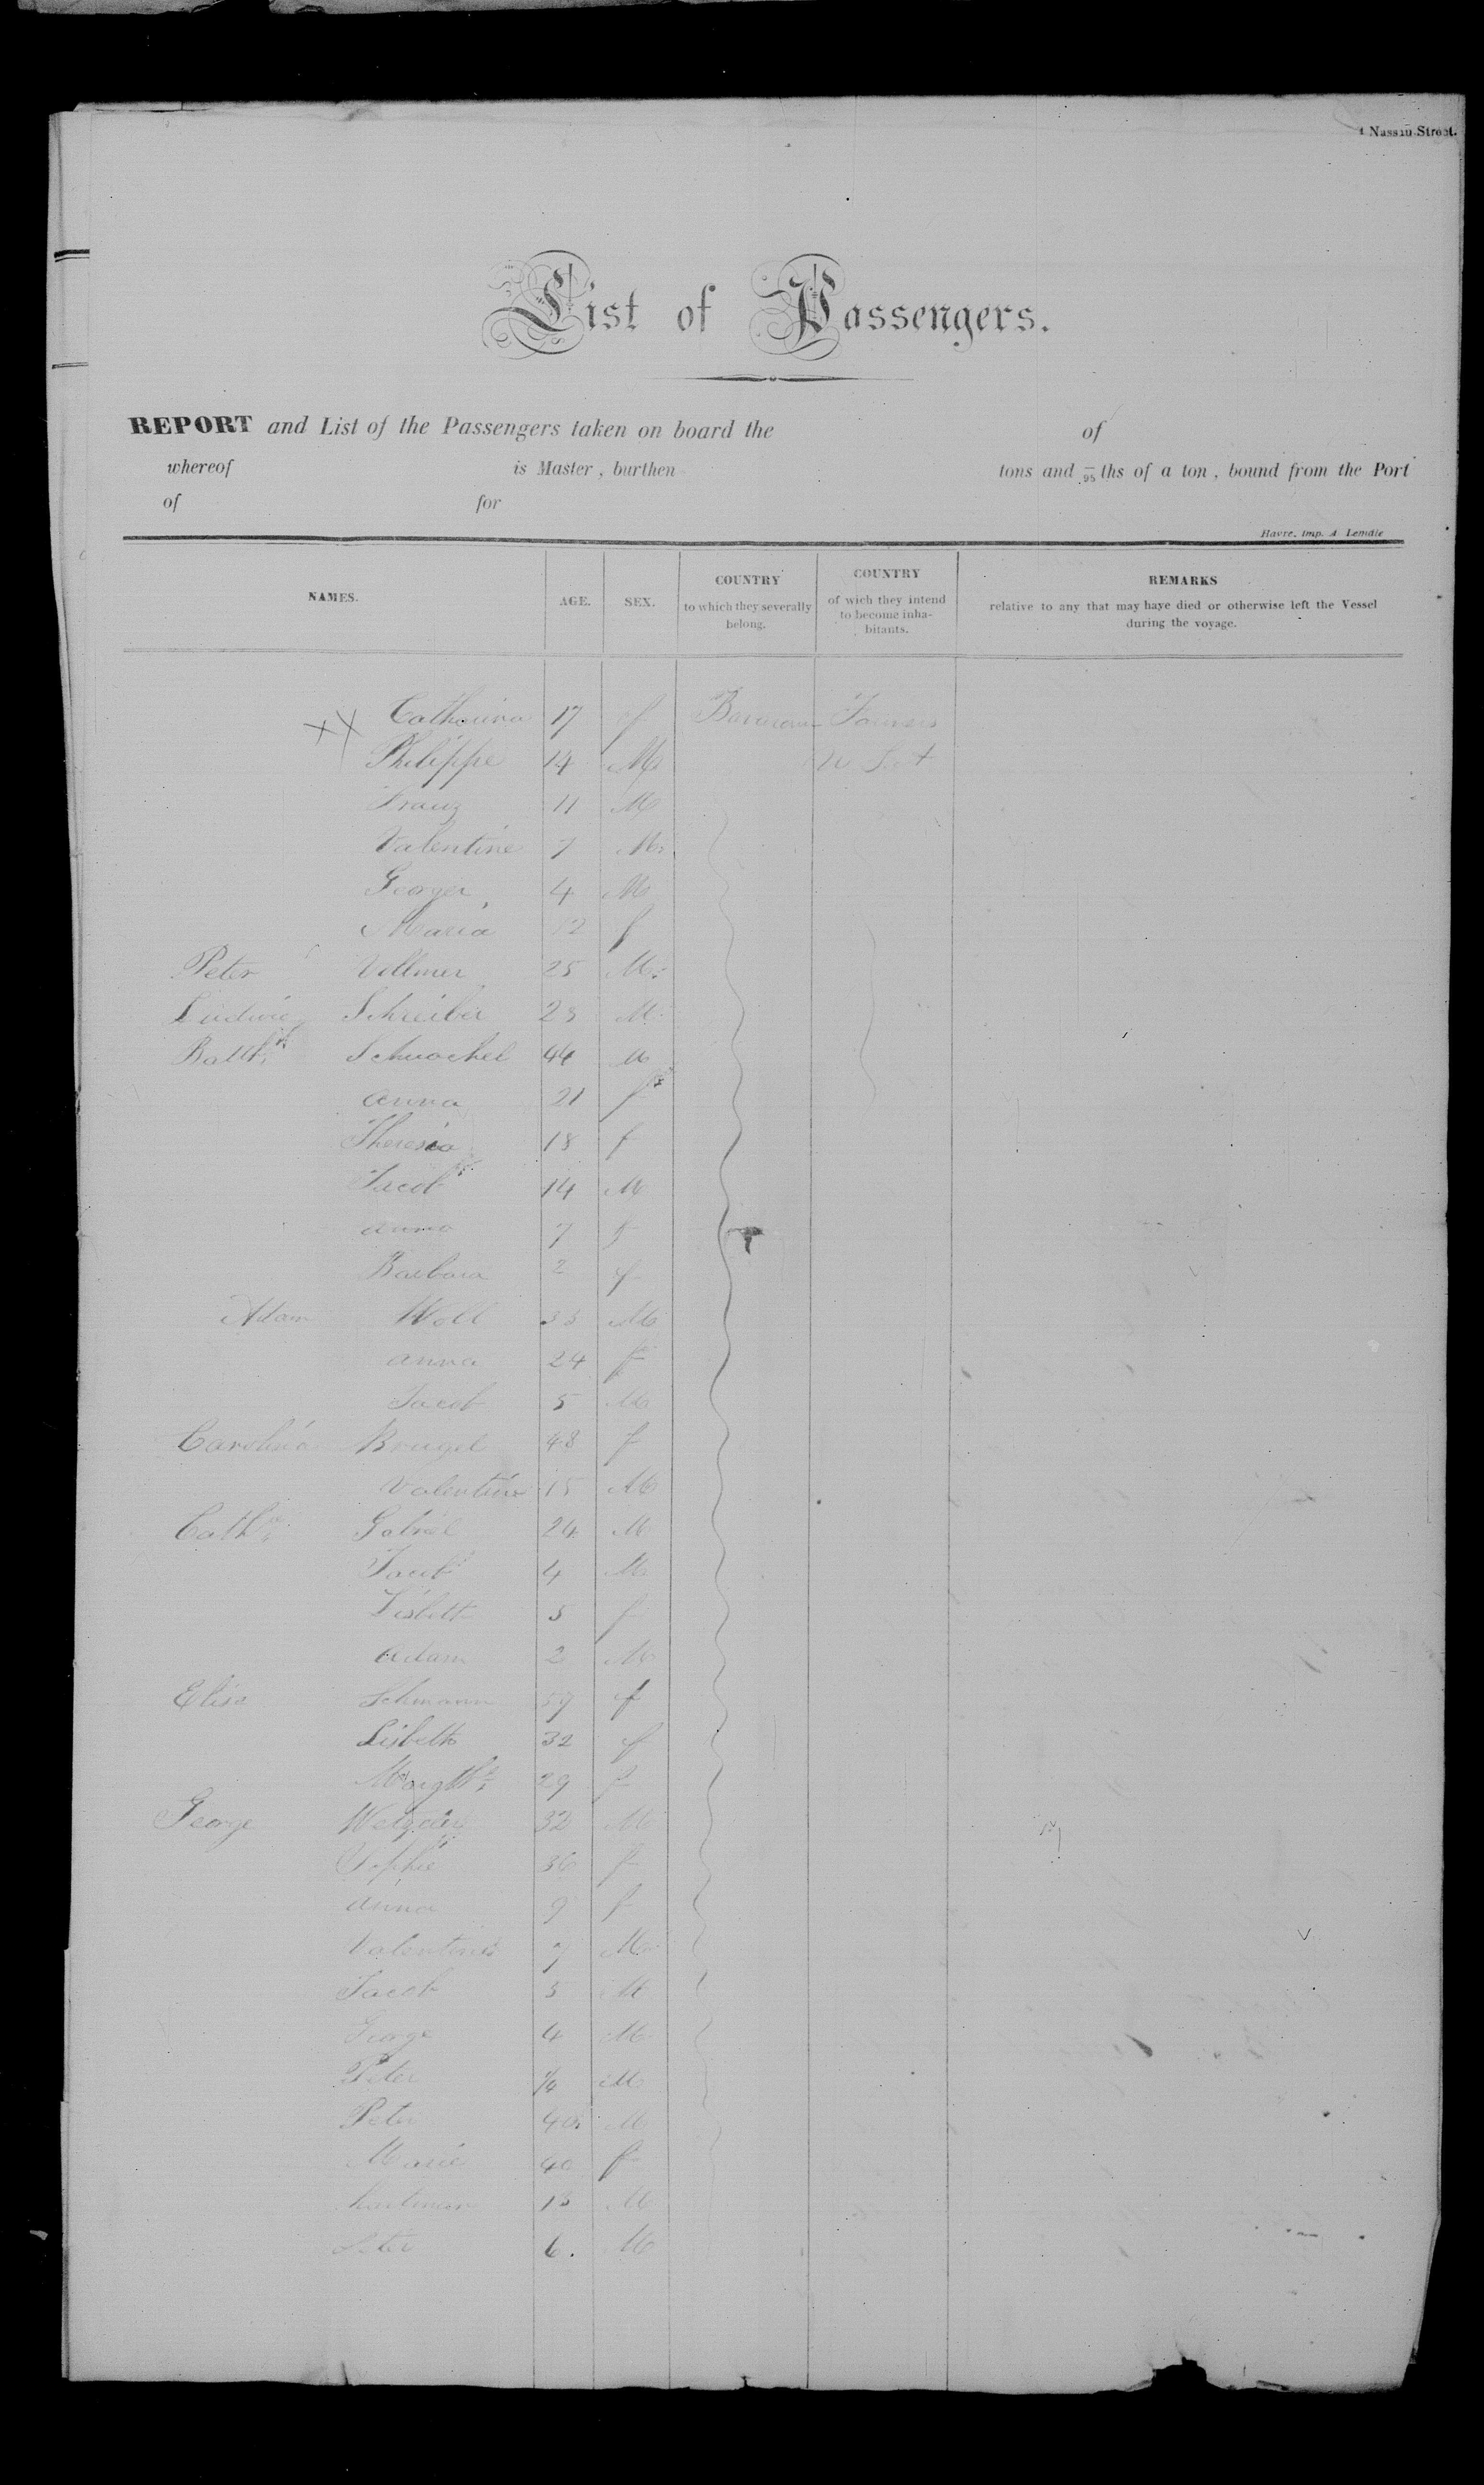 1 Nassau Street.
List of Passengers.
REPORT and List of the Passengers taken on board the of
whereof is Master, burthen tons and /95 ths of a ton, bound from the Port
of for
Havre, imp. A Lemâle
NAMES. AGE. SEX. COUNTRY to which they severally belong. COUNTRY of wich they intend to become inhabitants. REMARKS relative to any that may haye died or otherwise left the Vessel during the voyage.
Catharina 17 f
Philippe 14 M
Franz 11 M
Valentine 7 M
George 4 M
Maria f
Peter Vollmer 25 M
Ludwig Schreiber 23 M
Balth. 44 M
Anna 21 f
Theresia 18 f
Jacob 14 M
Anna 7 f
Barbara 2 f
Adam Woll M
Anna 24 f
Jacob 5 M
Carolina 48 f
Valentine 15 M
Cath. Gabriel 24 M
Jacob 4 M
Lisbeth 3 f
Adam 2 M
Elise f
Lisbeth 32 f
Margth. 29 f
George 32 M
Sophie 36 f
Anna 9 f
Valentine 7 M
Jacob 5 M
George 4 M
Peter M
Peter 40 M
Marie 40 f
13 M
Peter 6. M